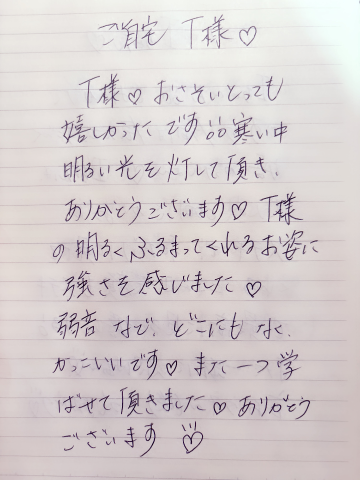 ご自宅 T様♡
T様♡おさそいとっても
嬉しかったです 寒い中
明るい光を灯して頂き、
ありがとうございます♡T様
の明るくふるまってくれるお姿に
強さを感じました♡
弱音など、どこにもなく、
かっこいいです♡また一つ学
ばせて頂きました♡ありがとう
ございます♡